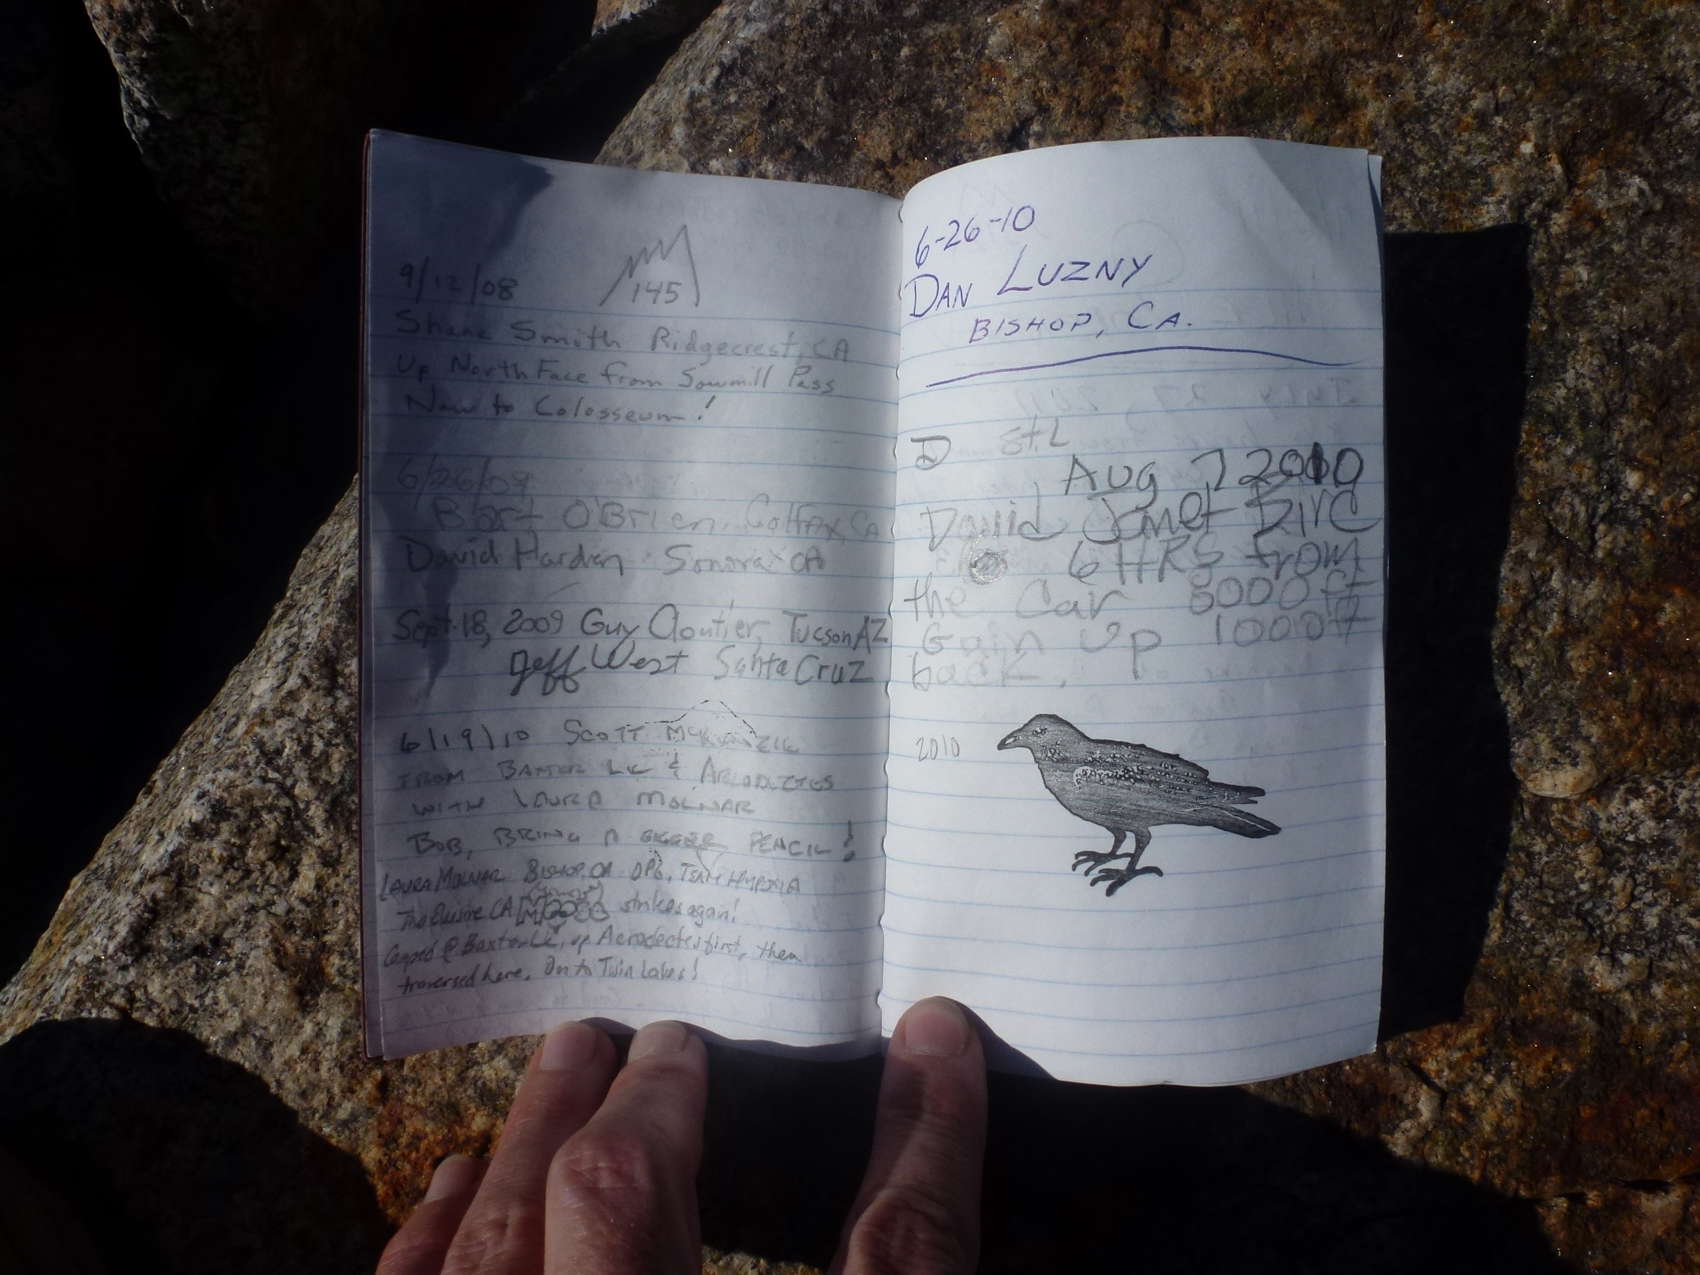 9/12/08
145
Shane Smith Ridgecrest, CA
Up North Face from Sawmill Pass
Now to Colosseum!
6/26/09
Bart O'Brien, Colfax, CA
David Harden Sonora CA
Sept. 18, 2009 Guy Cloutier, Tucson AZ
Jeff West Santa Cruz
6/19/10 Scott McKenzie
from Baxter Lk & Acrodectes
with Laura Molnar
Bob, bring a bigger pencil!
Laura Molnar Bishop, CA DPS, Team Hypoxia
The Elusive CA strikes again!
Camped @ Baxter Lk, up Acrodectes first, then
traversed here. On to Twin Lakes!
6-26-10
Dan Luzny
Bishop, Ca.
Aug 7 2010
David Janet
6 HRS from
the Car 8000 ft
Gain Up 1000 ft
back.
2010